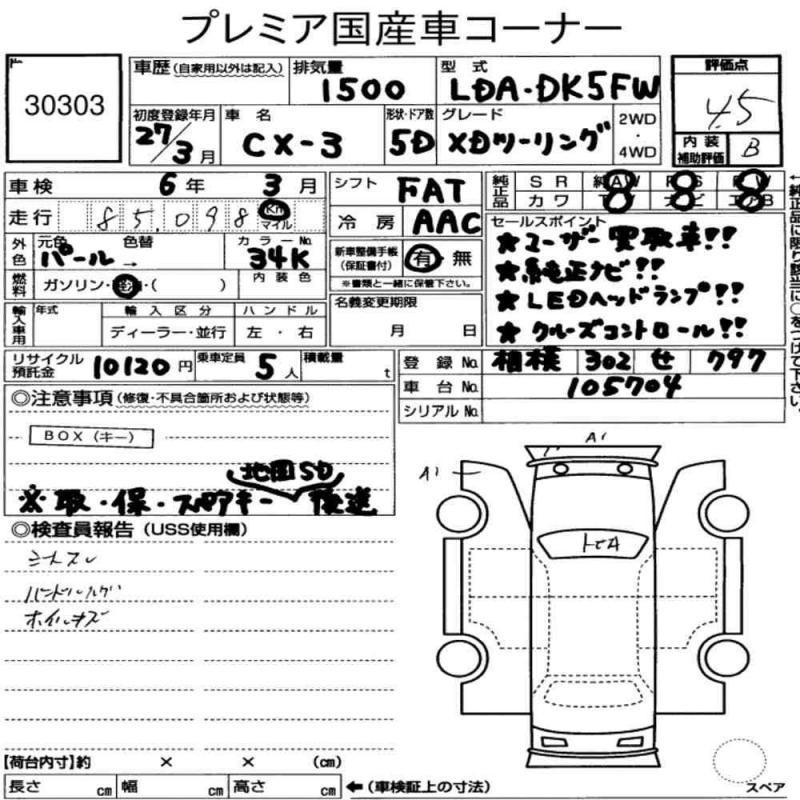 プレミア国産車コーナー
30303
車歴 (自家用以外は記入)
排気量 1500
型式 LDA・DK5FW
評価点 4.5
初度登録年月 27/3月
車名 CX-3
形状・ドア数 5D
グレード XDツーリング
2WD・4WD
内装補助評価 B
車検 6年 3月
シフト FAT
純正品 SR
カワ ナビ エアB
走行 85,098 Km マイル
冷房 AAC
セールスポイント
★ユーザー買取車!!
★純正ナビ!!
★LEDヘッドランプ!!
★クルーズコントロール!!
←純正品に限り該当に○をつけて下さい。
外色 元色 パール → 色替
カラーNo. 34K
内装色
新車整備手帳(保証書付) 有・無
※書類と一緒に保管下さい。
燃料 ガソリン・軽油・( )
名義変更期限
月 日
輸入車用 年式 輸入区分 ハンドル
ディーラー・並行 左・右
リサイクル預託金 10120円
乗車定員 5人
積載量 t
登録No. 相模 302 せ 797
車台No. 105704
シリアルNo.
◎注意事項 (修復・不具合箇所および状態等)
BOX(キー)
地図SD
※取・保・スペアキー 後送
◎検査員報告 (USS使用欄)
シートスレ
ホイルキズ
A1
A1
【荷台内寸】約 × × (cm)
長さ cm 幅 cm 高さ cm ←(車検証上の寸法)
スペア